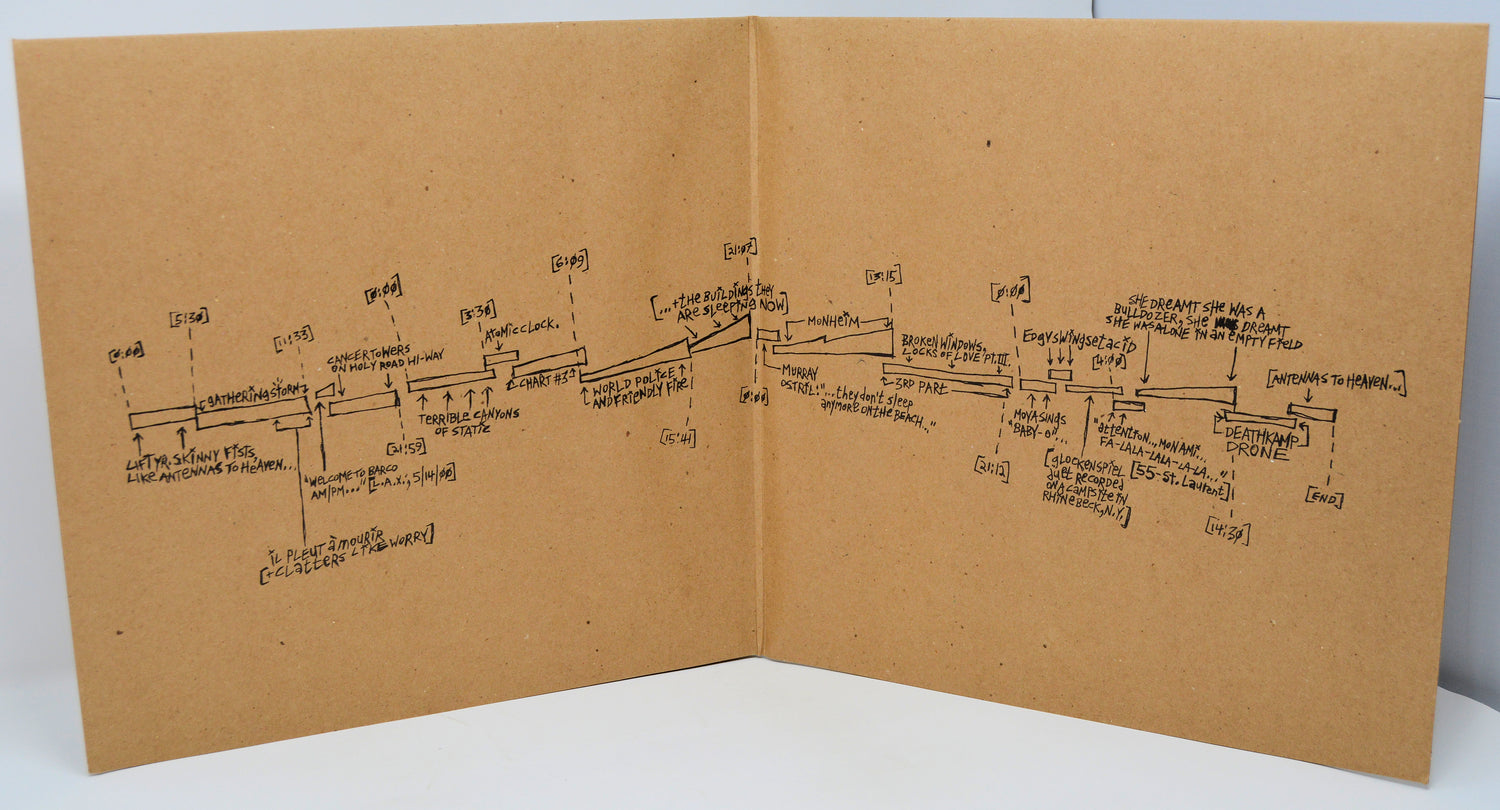 [0:00]
[5:30]
[11:33]
GATHERING STORM
LIFT YR. SKINNY FISTS,
LIKE ANTENNAS TO HEAVEN...
iL PLEUT À MOURIR
[+CLATTERS LIKE WORRY]
"WELCOME TO BARCO
AM/PM..." [L.A.X.; 5/14/00]
CANCER TOWERS
ON HOLY ROAD HI-WAY
[21:59]
[0:00]
TERRIBLE CANYONS
OF STATIC
[3:30]
ATOMIC CLOCK.
CHART #3
[6:09]
WORLD POLICE
AND FRIENDLY FIRE
[15:41]
[...+THE BUILDINGS THEY
ARE SLEEPING NOW]
[21:07]
[0:00]
MURRAY
OSTRIL: "...they don't sleep
anymore on the beach..."
MONHEIM
[13:15]
BROKEN WINDOWS,
LOCKS OF LOVE Pt. III.
3RD PART
[21:12]
[0:00]
MOYA SINGS
"BABY-O"...
EDGYSWINGSETACID
[GLOCKENSPIEL
DUET RECORDED
ON A CAMPSITE IN
RHINEBECK, N.Y.]
[4:00]
"ATTENTION... MON AMI...
FA-LALA-LALA-LA-LA..."
[55-St. Laurent]
SHE DREAMT SHE WAS A
BULLDOZER, SHE DREAMT
SHE WAS ALONE IN AN EMPTY FIELD
DEATHKAMP
DRONE
[14:30]
[ANTENNAS TO HEAVEN...]
[END]